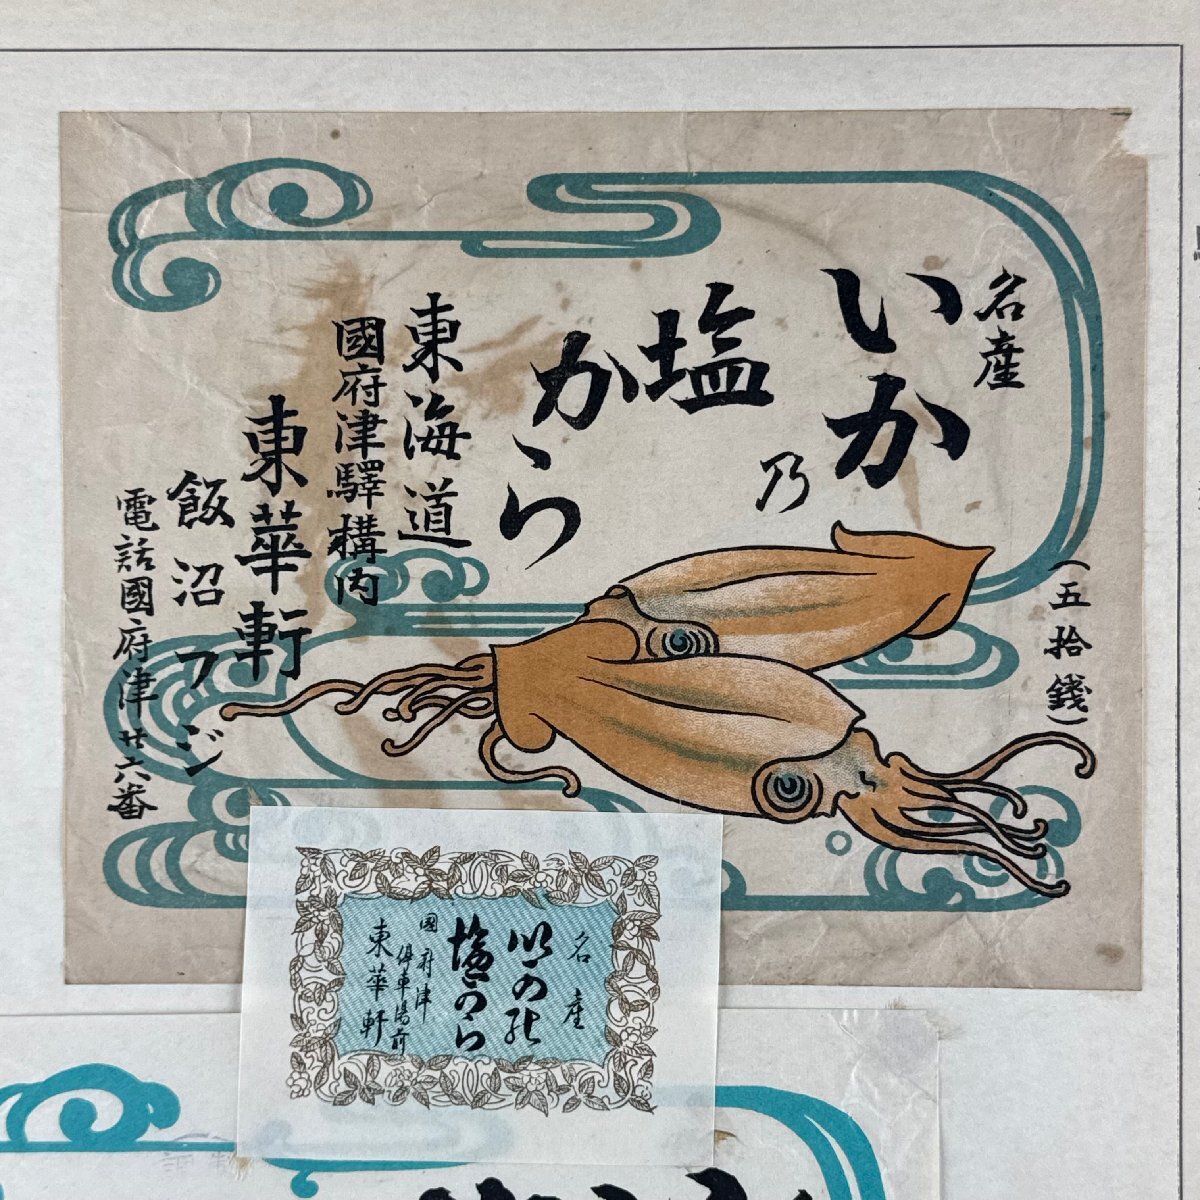 名産
いか
乃
塩
から
(五拾錢)
東海道
國府津驛構内
東華軒
飯沼フジ
電話國府津廿六番
名産
以かの
塩から
國府津
停車場前
東華軒